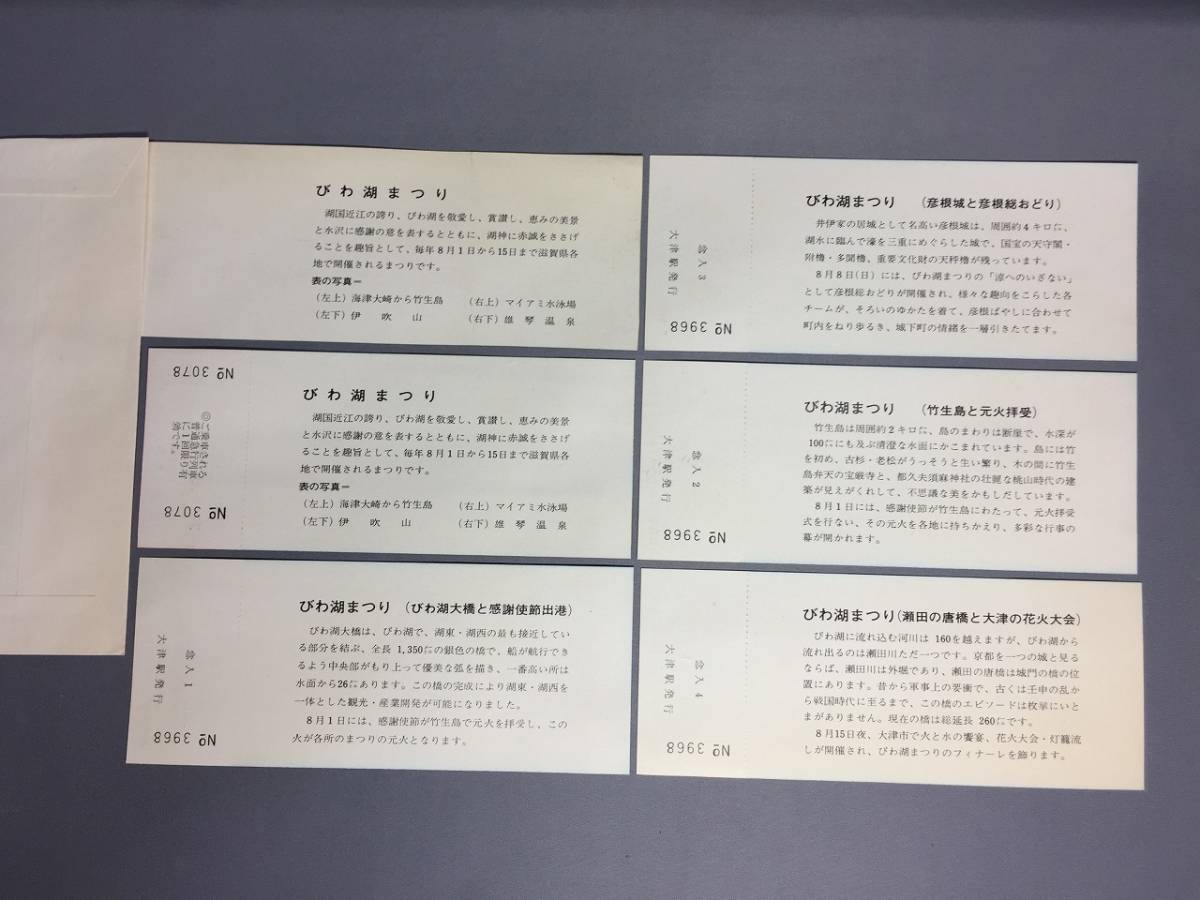 びわ湖まつり
湖国近江の誇り、びわ湖を敬愛し、賞讃し、恵みの美景
と水沢に感謝の意を表するとともに、湖神に赤誠をささげ
ることを趣旨として、毎年8月1日から15日まで滋賀県各
地で開催されるまつりです。
表の写真=
(左上) 海津大崎から竹生島 (右上) マイアミ水泳場
(左下) 伊吹山 (右下) 雄琴温泉
№ 3078
◎ご乗車される
普通急行列車
に1回限り有
効です。
№ 3078
びわ湖まつり
湖国近江の誇り、びわ湖を敬愛し、賞讃し、恵みの美景
と水沢に感謝の意を表するとともに、湖神に赤誠をささげ
ることを趣旨として、毎年8月1日から15日まで滋賀県各
地で開催されるまつりです。
表の写真=
(左上) 海津大崎から竹生島 (右上) マイアミ水泳場
(左下) 伊吹山 (右下) 雄琴温泉
念入1
大津駅発行
№ 3968
びわ湖まつり (びわ湖大橋と感謝使節出港)
びわ湖大橋は、びわ湖で、湖東・湖西の最も接近してい
る部分を結ぶ、全長1,350㍍の銀色の橋で、船が航行でき
るよう中央部がもり上って優美な弧を描き、一番高い所は
水面から26㍍あります。この橋の完成により湖東・湖西を
一体とした観光・産業開発が可能になりました。
8月1日には、感謝使節が竹生島で元火を拝受し、この
火が各所のまつりの元火となります。
念入3
大津駅発行
№ 3968
びわ湖まつり (彦根城と彦根総おどり)
井伊家の居城として名高い彦根城は、周囲約4キロ㍍、
湖水に臨んで濠を三重にめぐらした城で、国宝の天守閣・
附櫓・多聞櫓、重要文化財の天秤櫓が残っています。
8月8日(日)には、びわ湖まつりの「涼へのいざない」
として彦根総おどりが開催され、様々な趣向をこらした各
チームが、そろいのゆかたを着て、彦根ばやしに合わせて
町内をねり歩るき、城下町の情緒を一層引きたてます。
念入2
大津駅発行
№ 3968
びわ湖まつり (竹生島と元火拝受)
竹生島は周囲約2キロ㍍、島のまわりは断崖で、水深が
100㍍にも及ぶ清澄な水面にかこまれています。島には竹
を初め、古杉・老松がうっそうと生い繁り、木の間に竹生
島弁天の宝厳寺と、都久夫須麻神社の壮麗な桃山時代の建
築が見えがくれして、不思議な美をかもしだしています。
8月1日には、感謝使節が竹生島にわたって、元火拝受
式を行ない、その元火を各地に持ちかえり、多彩な行事の
幕が開かれます。
念入4
大津駅発行
№ 3968
びわ湖まつり(瀬田の唐橋と大津の花火大会)
びわ湖に流れ込む河川は160を越えますが、びわ湖から
流れ出るのは瀬田川ただ一つです。京都を一つの城と見る
ならば、瀬田川は外堀であり、瀬田の唐橋は城門の橋の位
置にあります。昔から軍事上の要衝で、古くは壬申の乱か
ら戦国時代に至るまで、この橋のエピソードは枚挙にいと
まがありません。現在の橋は総延長260㍍です。
8月15日夜、大津市で火と水の饗宴、花火大会・灯籠流
しが開催され、びわ湖まつりのフィナーレを飾ります。